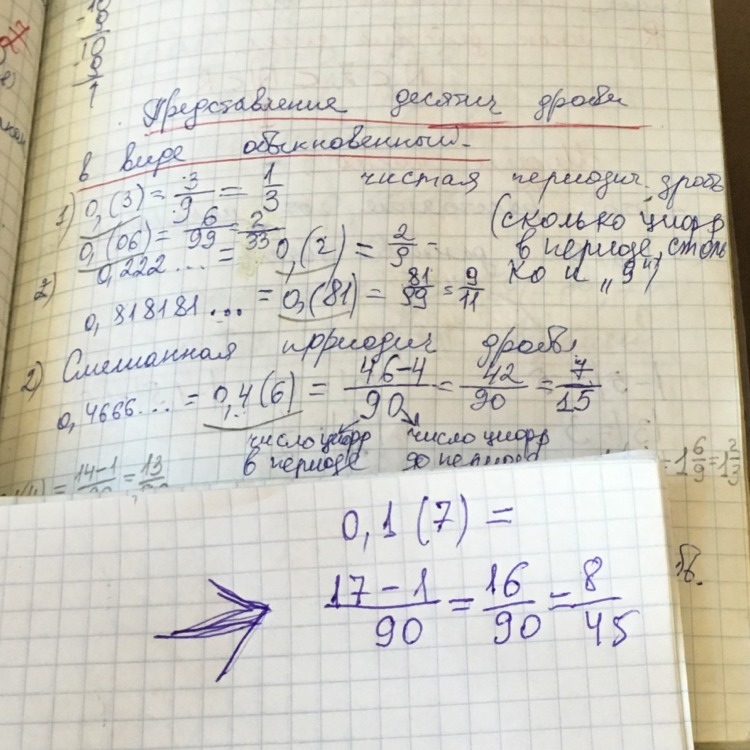 Представление десятич дроби
в виде обыкновенный.
1) 0,(3) = 3/9 = 1/3 чистая периодич. дробь
0,(06) = 6/99 = 2/33 (сколько цифр
0,222... = 0,(2) = 2/9 - в периоде, столь
2) ко и „9")
0,818181... = 0,(81) = 81/99 = 9/11
2) Смешанная прриодич дробь
0,4666... = 0,4(6) = 46-4/90 = 42/90 = 7/15
число цифр число цифр
в периоде до периода
= 14-1/90 = 13/90 = 1 6/9 = 1 2/3
0,1(7) =
17-1/90 = 16/90 = 8/45